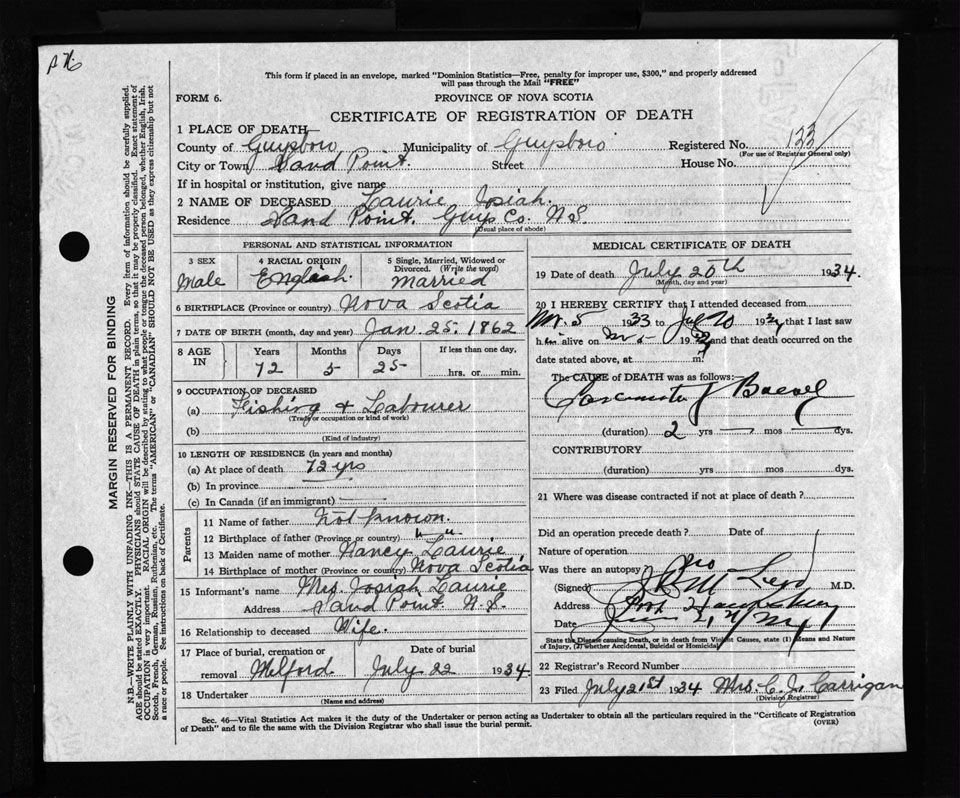 This form if placed in an envelope, marked "Dominion Statistics—Free, penalty for improper use, $300," and properly addressed
will pass through the Mail "FREE"
FORM 6.
PROVINCE OF NOVA SCOTIA
CERTIFICATE OF REGISTRATION OF DEATH
1 PLACE OF DEATH
County of Guysboro Municipality of Guysboro Registered No. 133
(For use of Registrar General only)
City or Town Sand Point. Street House No.
If in hospital or institution, give name
2 NAME OF DECEASED Laurie Josiah.
Residence Sand Point. Guys Co. N.S
(Usual place of abode)
PERSONAL AND STATISTICAL INFORMATION
3 SEX 4 RACIAL ORIGIN 5 Single, Married, Widowed or
Divorced. (Write the word)
Male English. Married
6 BIRTHPLACE (Province or country) Nova Scotia
7 DATE OF BIRTH (month, day and year) Jan. 25. 1862
8 AGE IN Years Months Days If less than one day,
72 5 25 hrs. or min.
9 OCCUPATION OF DECEASED
(a) Fishing & Labourer
(Trade or occupation or kind of work)
(b)
(Kind of industry)
10 LENGTH OF RESIDENCE (in years and months)
(a) At place of death 72 yrs
(b) In province
(c) In Canada (if an immigrant)
Parents
11 Name of father Not known.
12 Birthplace of father (Province or country) " "
13 Maiden name of mother Nancy Laurie
14 Birthplace of mother (Province or country) Nova Scotia
15 Informant's name Mrs. Josiah Laurie
Address Sand Point. N.S.
16 Relationship to deceased Wife.
17 Place of burial, cremation or Date of burial
removal Melford July 22 1934
18 Undertaker
(Name and address)
MEDICAL CERTIFICATE OF DEATH
19 Date of death July 20th 1934.
(Month, day and year)
20 I HEREBY CERTIFY that I attended deceased from
5 1933 to July 20 193 that I last saw
h alive on 193 and that death occurred on the
date stated above, at m.
The CAUSE of DEATH was as follows:
(duration) 2 yrs — mos — dys.
CONTRIBUTORY
(duration) yrs mos dys.
21 Where was disease contracted if not at place of death?
Did an operation precede death? Date of
Nature of operation
Was there an autopsy No
(Signed) M.D.
Address Port
Date
State the Disease causing Death, or in death from Violent Causes, state (1) Means and Nature
of Injury, (2) whether Accidental, Suicidal or Homicidal
22 Registrar's Record Number
23 Filed July 21st 1934 Mrs. C. J. Carrigan
(Division Registrar)
Sec. 46—Vital Statistics Act makes it the duty of the Undertaker or person acting as Undertaker to obtain all the particulars required in the "Certificate of Registration
of Death" and to file the same with the Division Registrar who shall issue the burial permit.
(OVER)
MARGIN RESERVED FOR BINDING
N.B.—WRITE PLAINLY WITH UNFADING INK—THIS IS A PERMANENT RECORD. Every item of information should be carefully supplied.
AGE should be stated EXACTLY. PHYSICIANS should STATE CAUSE OF DEATH in plain terms, so that it may be properly classified. Exact statement of
OCCUPATION is very important. RACIAL ORIGIN will be described by stating to what people or tongue the deceased person belonged, whether English, Irish,
Scotch, French, German, Russian, Ruthenian, etc. The terms "AMERICAN" or "CANADIAN" SHOULD NOT BE USED as they express citizenship but not
a race or people. See instructions on back of Certificate.